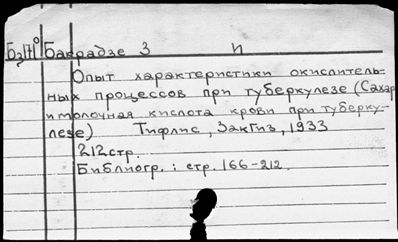 Бакрадзе З И
Опыт характеристики окислитель-
ных процессов при туберкулезе (Сахар
и молочная кислота крови при туберку-
лезе) Тифлис, ЗакГиз, 1933
212 стр.
Библиогр.: стр. 166-212.